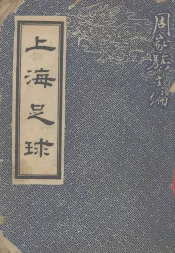 上海足球
周家騏編